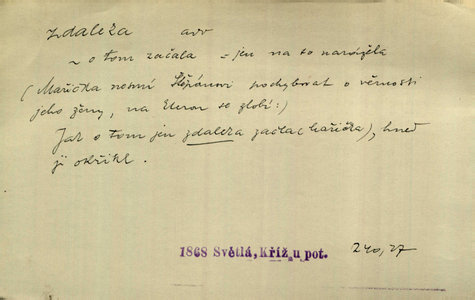 zdaleka adv
~ o tom začala = jen na to narážela
(Mařička nesmí Štěpánovi pochybovat o věrnosti
jeho ženy, na se zlobí:)
Jak o tom jen zdaleka začla (Mařička), hned
ji okřikl.
1868 Světlá, Kříž u pot. 240, 27